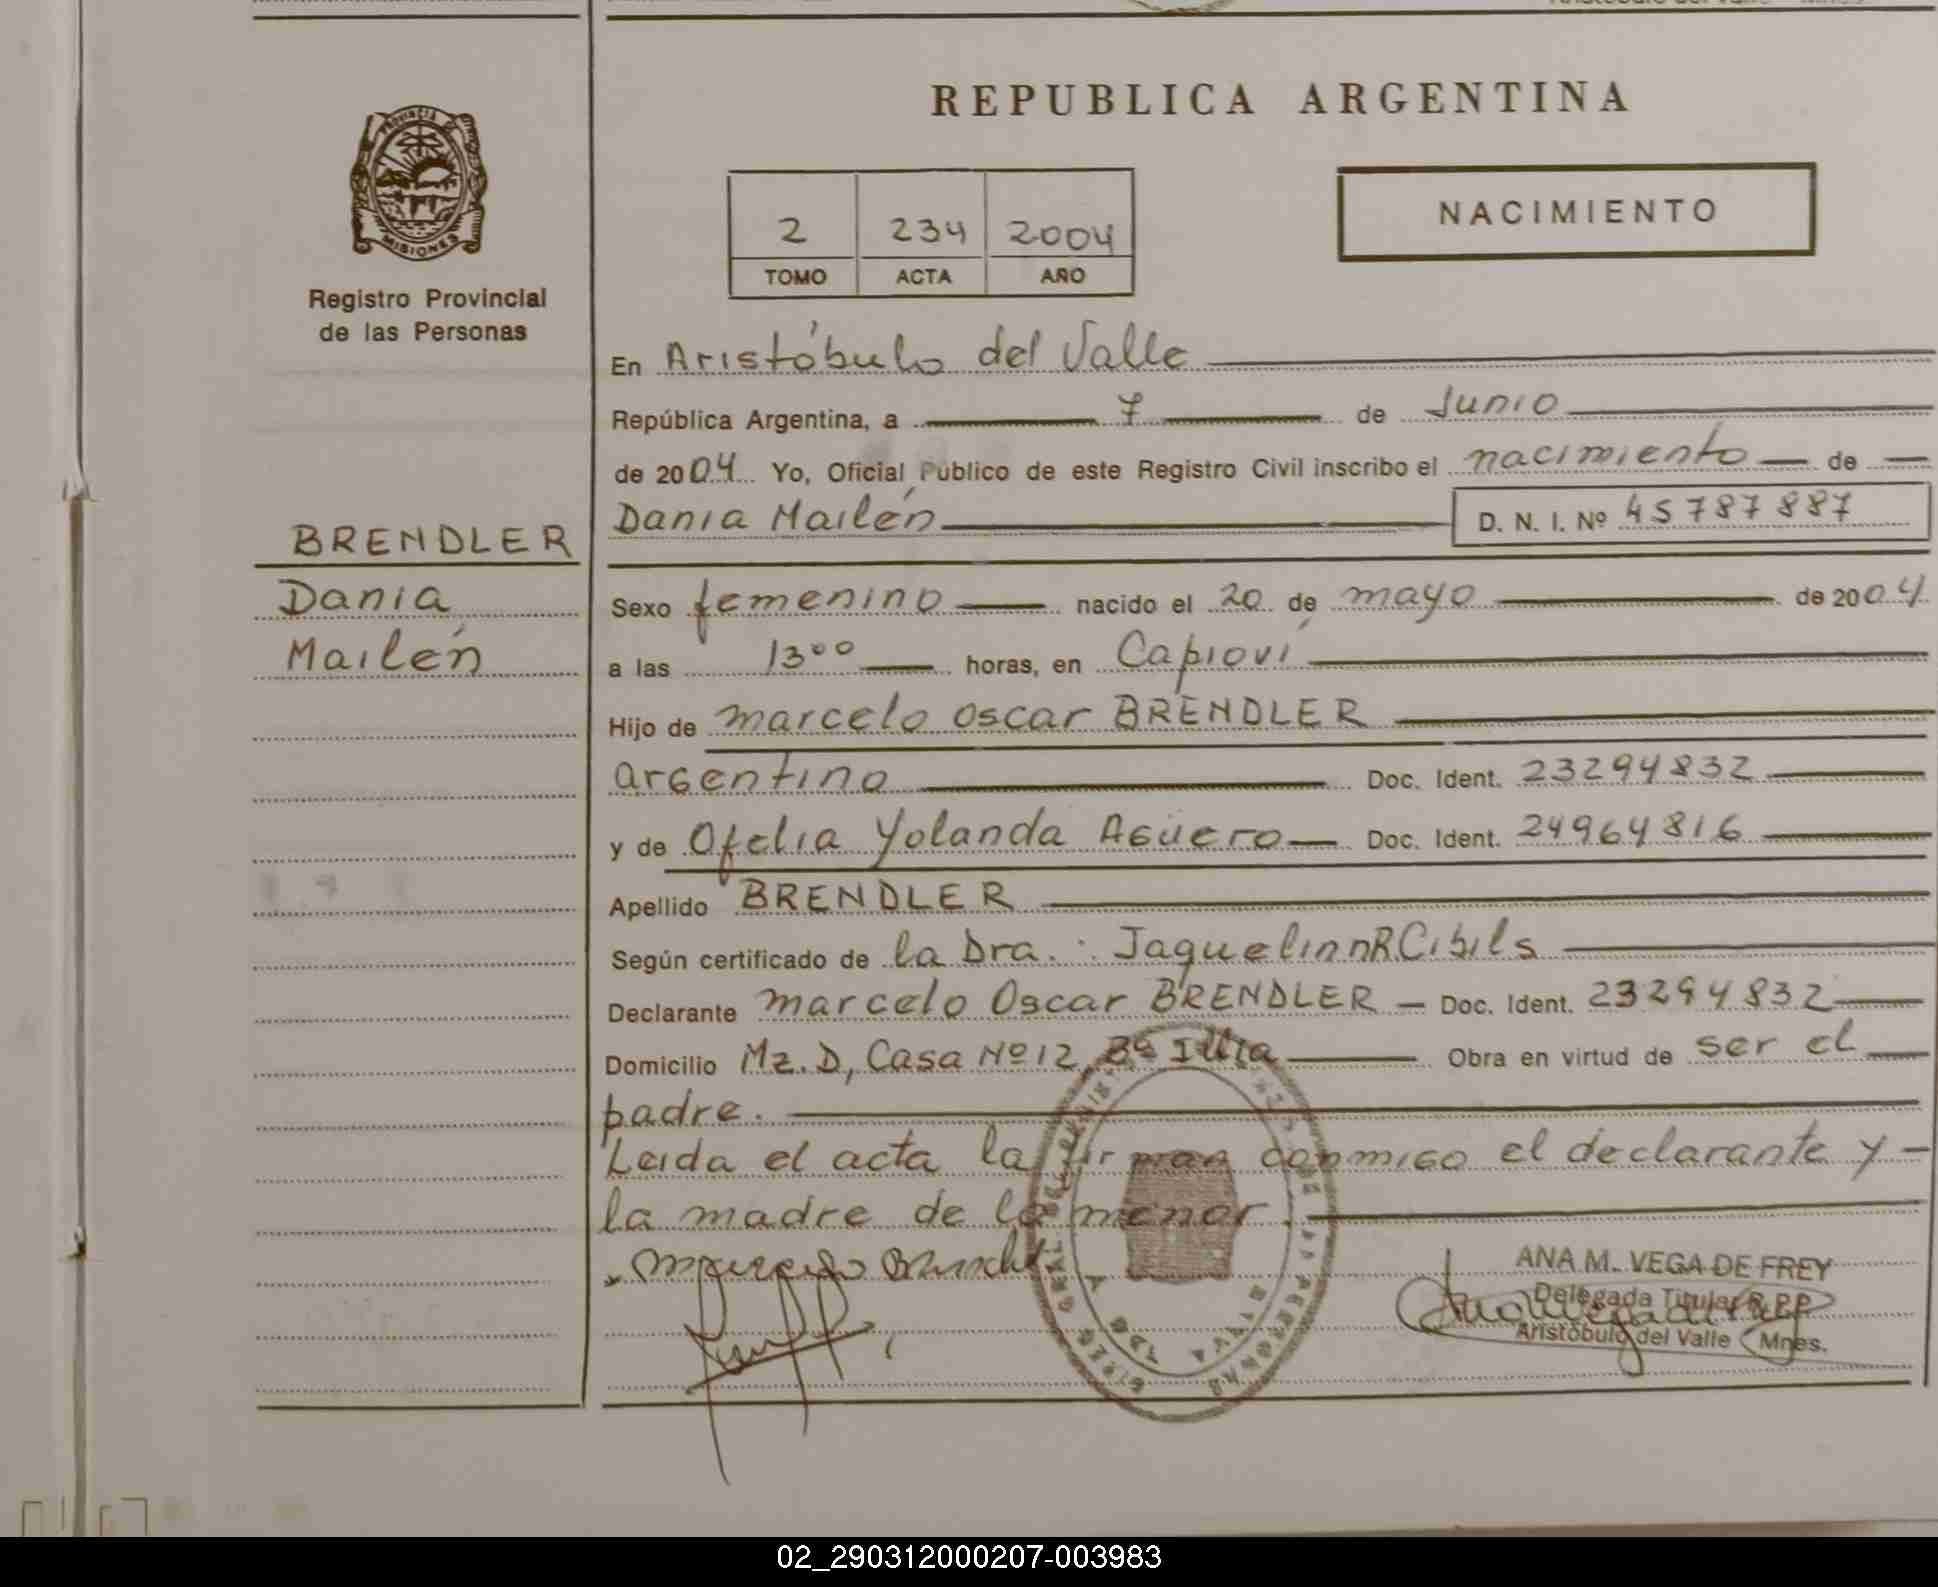 REPUBLICA ARGENTINA
PROVINCIA DE
MISIONES
Registro Provincial
de las Personas
2 234 2004
TOMO ACTA AÑO
NACIMIENTO
En Aristóbulo del Valle
República Argentina, a 7 de Junio
de 2004 Yo, Oficial Público de este Registro Civil inscribo el nacimiento de
Dania Mailén D. N. I. Nº 45787887
BRENDLER
Dania
Mailén
Sexo femenino nacido el 20 de mayo de 2004
a las 13⁰⁰ horas, en Capioví
Hijo de marcelo oscar BRENDLER
argentino Doc. Ident. 23294832
y de Ofelia Yolanda Agüero Doc. Ident. 24964816
Apellido BRENDLER
Según certificado de la Dra. : Jaquelinn R Cibils
Declarante marcelo Oscar BRENDLER Doc. Ident. 23294832
Domicilio Mz. D, Casa Nº 12, Bº Illia Obra en virtud de ser el
padre.
Leída el acta la firman conmigo el declarante y
la madre de la menor.
ANA M. VEGA DE FREY
Delegada Titular R.P.P.
Aristóbulo del Valle Mnes.
02_290312000207-003983